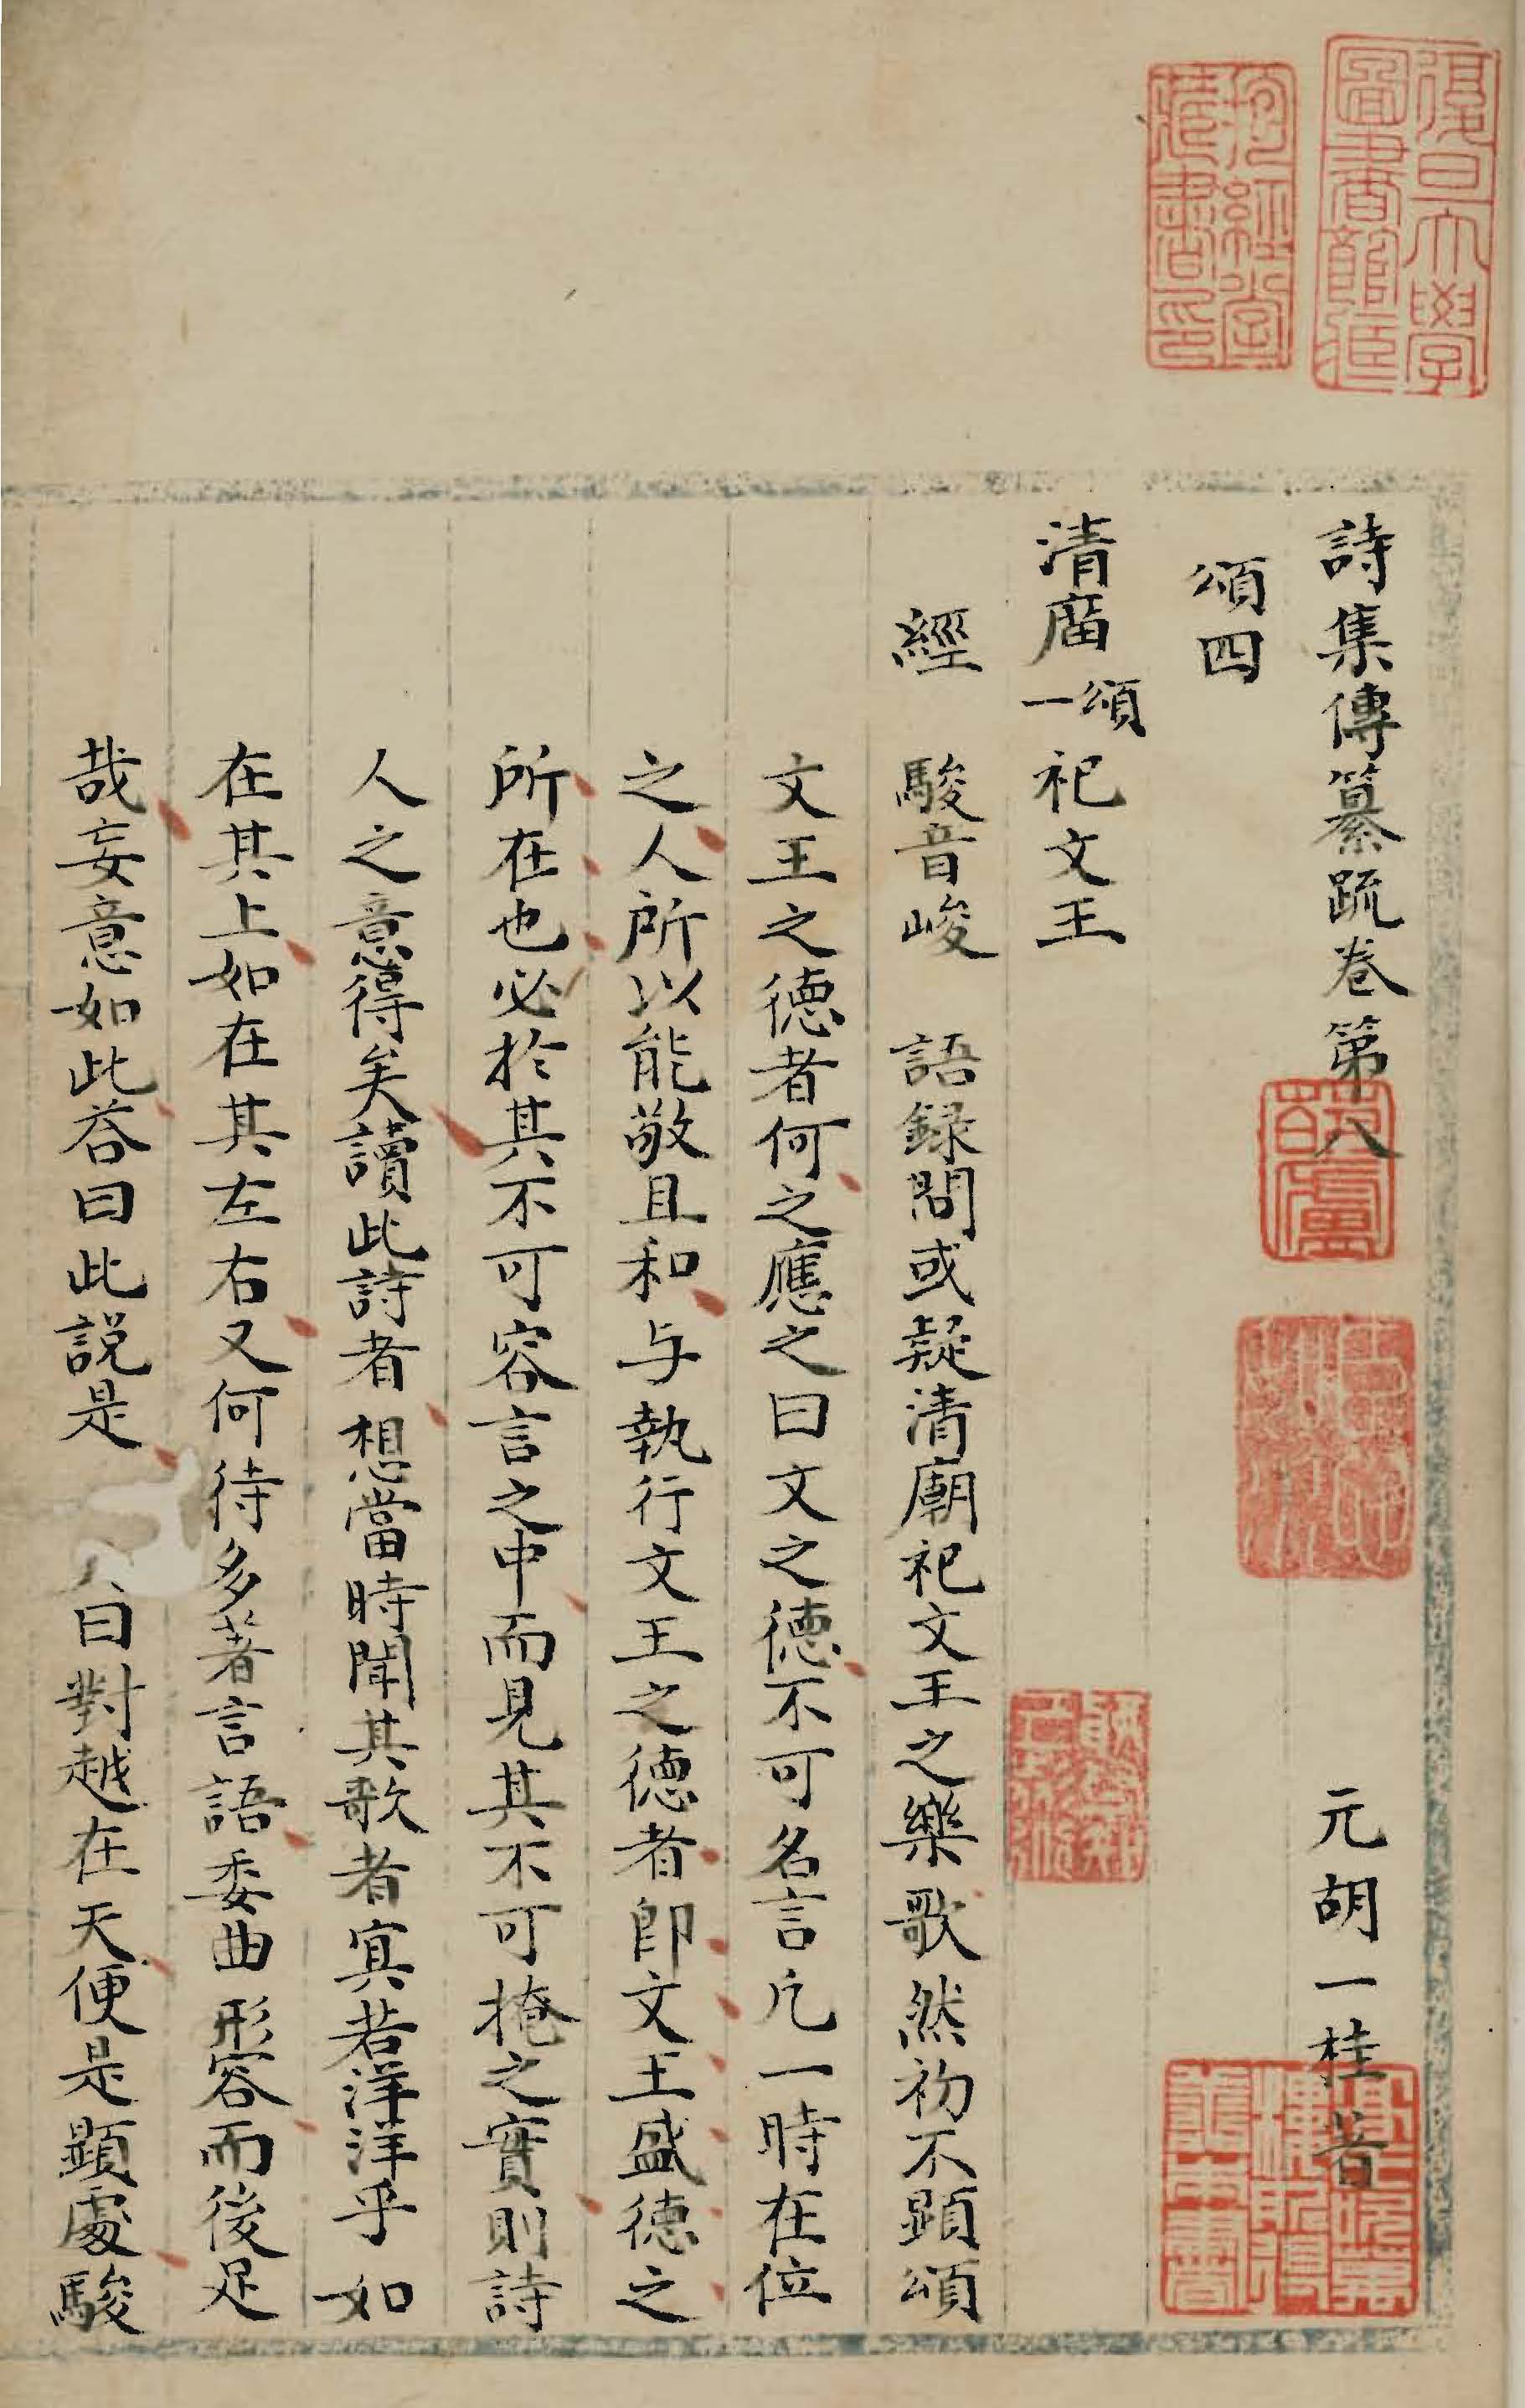 詩集傳纂疏卷第八 元胡一桂著
頌四
清庿 頌一 祀文王
經 駿音峻 語録問或疑清廟祀文王之樂歌然初不顕頌
文王之德者何之應之曰文之德不可名言凢一時在位
之人所以能敬且和与執行文王之德者即文王盛德之
所在也必於其不可容言之中而見其不可掩之實則詩
人之意得矣讀此詩者想當時聞其歌者寘若洋洋乎如
在其上如在其左右又何待多著言語委曲形容而後足
哉妄意如此荅曰此説是 曰對越在天便是顕處駿
復旦大學圖書館藏